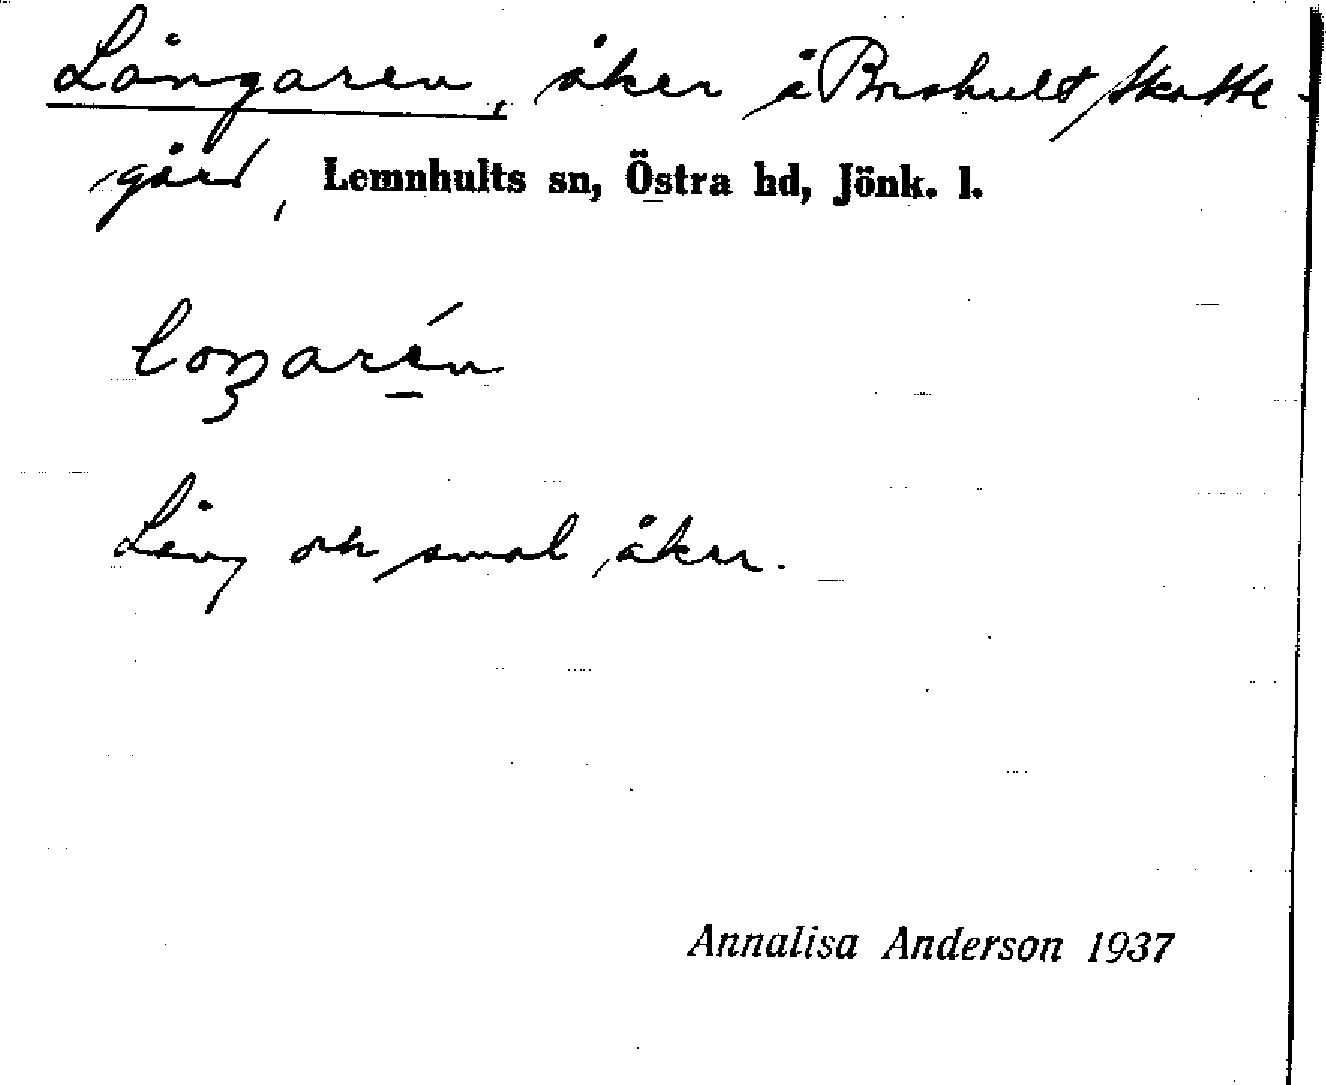 Långaren, åker å Brohult Skatte-
gård, Lemnhults sn, Östra hd, Jönk. l.
Lång och smal åker.
Annalisa Anderson 1937